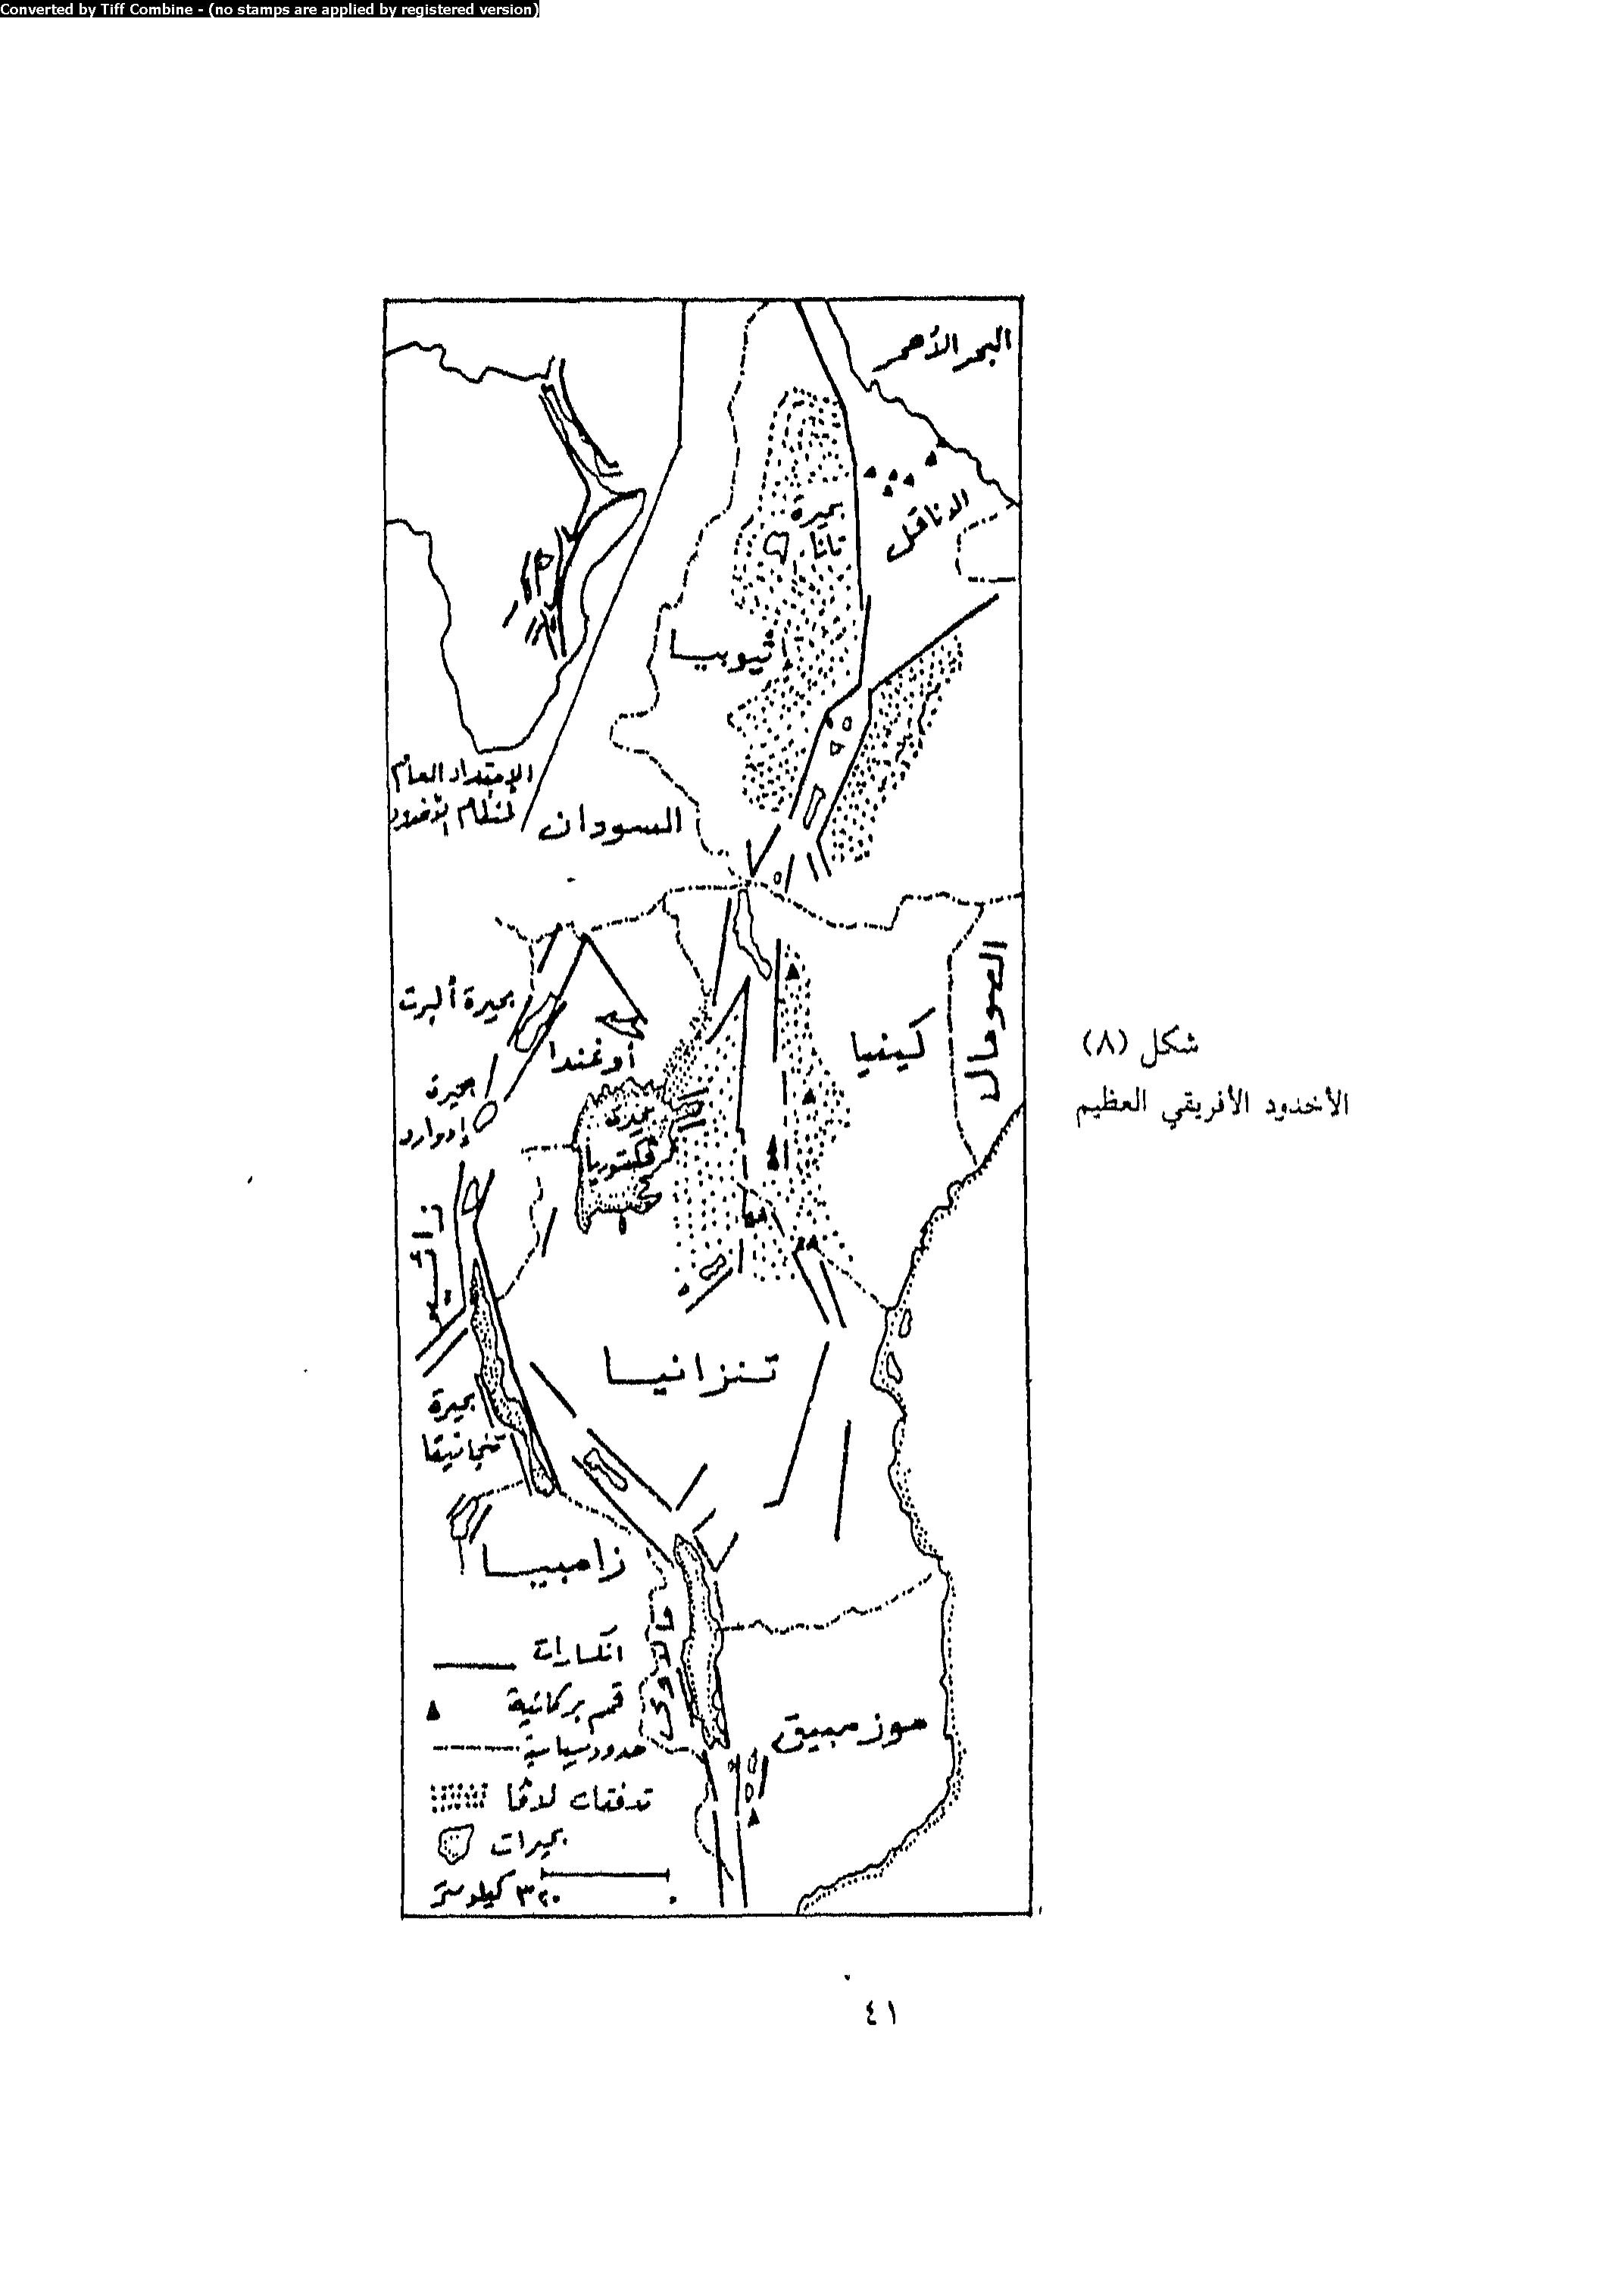 Converted by Tiff Combine - (no stamps are applied by registered version)
البحر الأحمر
الدناقل
بحيرة
تانا
ثيوبيا
الإمتداد العام
لنظام الأخدود
السودان
الصومال
كينيا
بحيرة ألبرت
أوغندا
بحيرة
إدوارد
بحيرة
فكتوريا
تنزانيا
بحيرة
تنجانيقا
زامبيا
ملاوى
موزمبيق
انكسارات
قمم بركانية
حدود سياسية
تدفقات لافا
بحيرات
٣٢٠ كيلومتر
٠
شكل (٨)
الأخدود الأفريقي العظيم
٤١